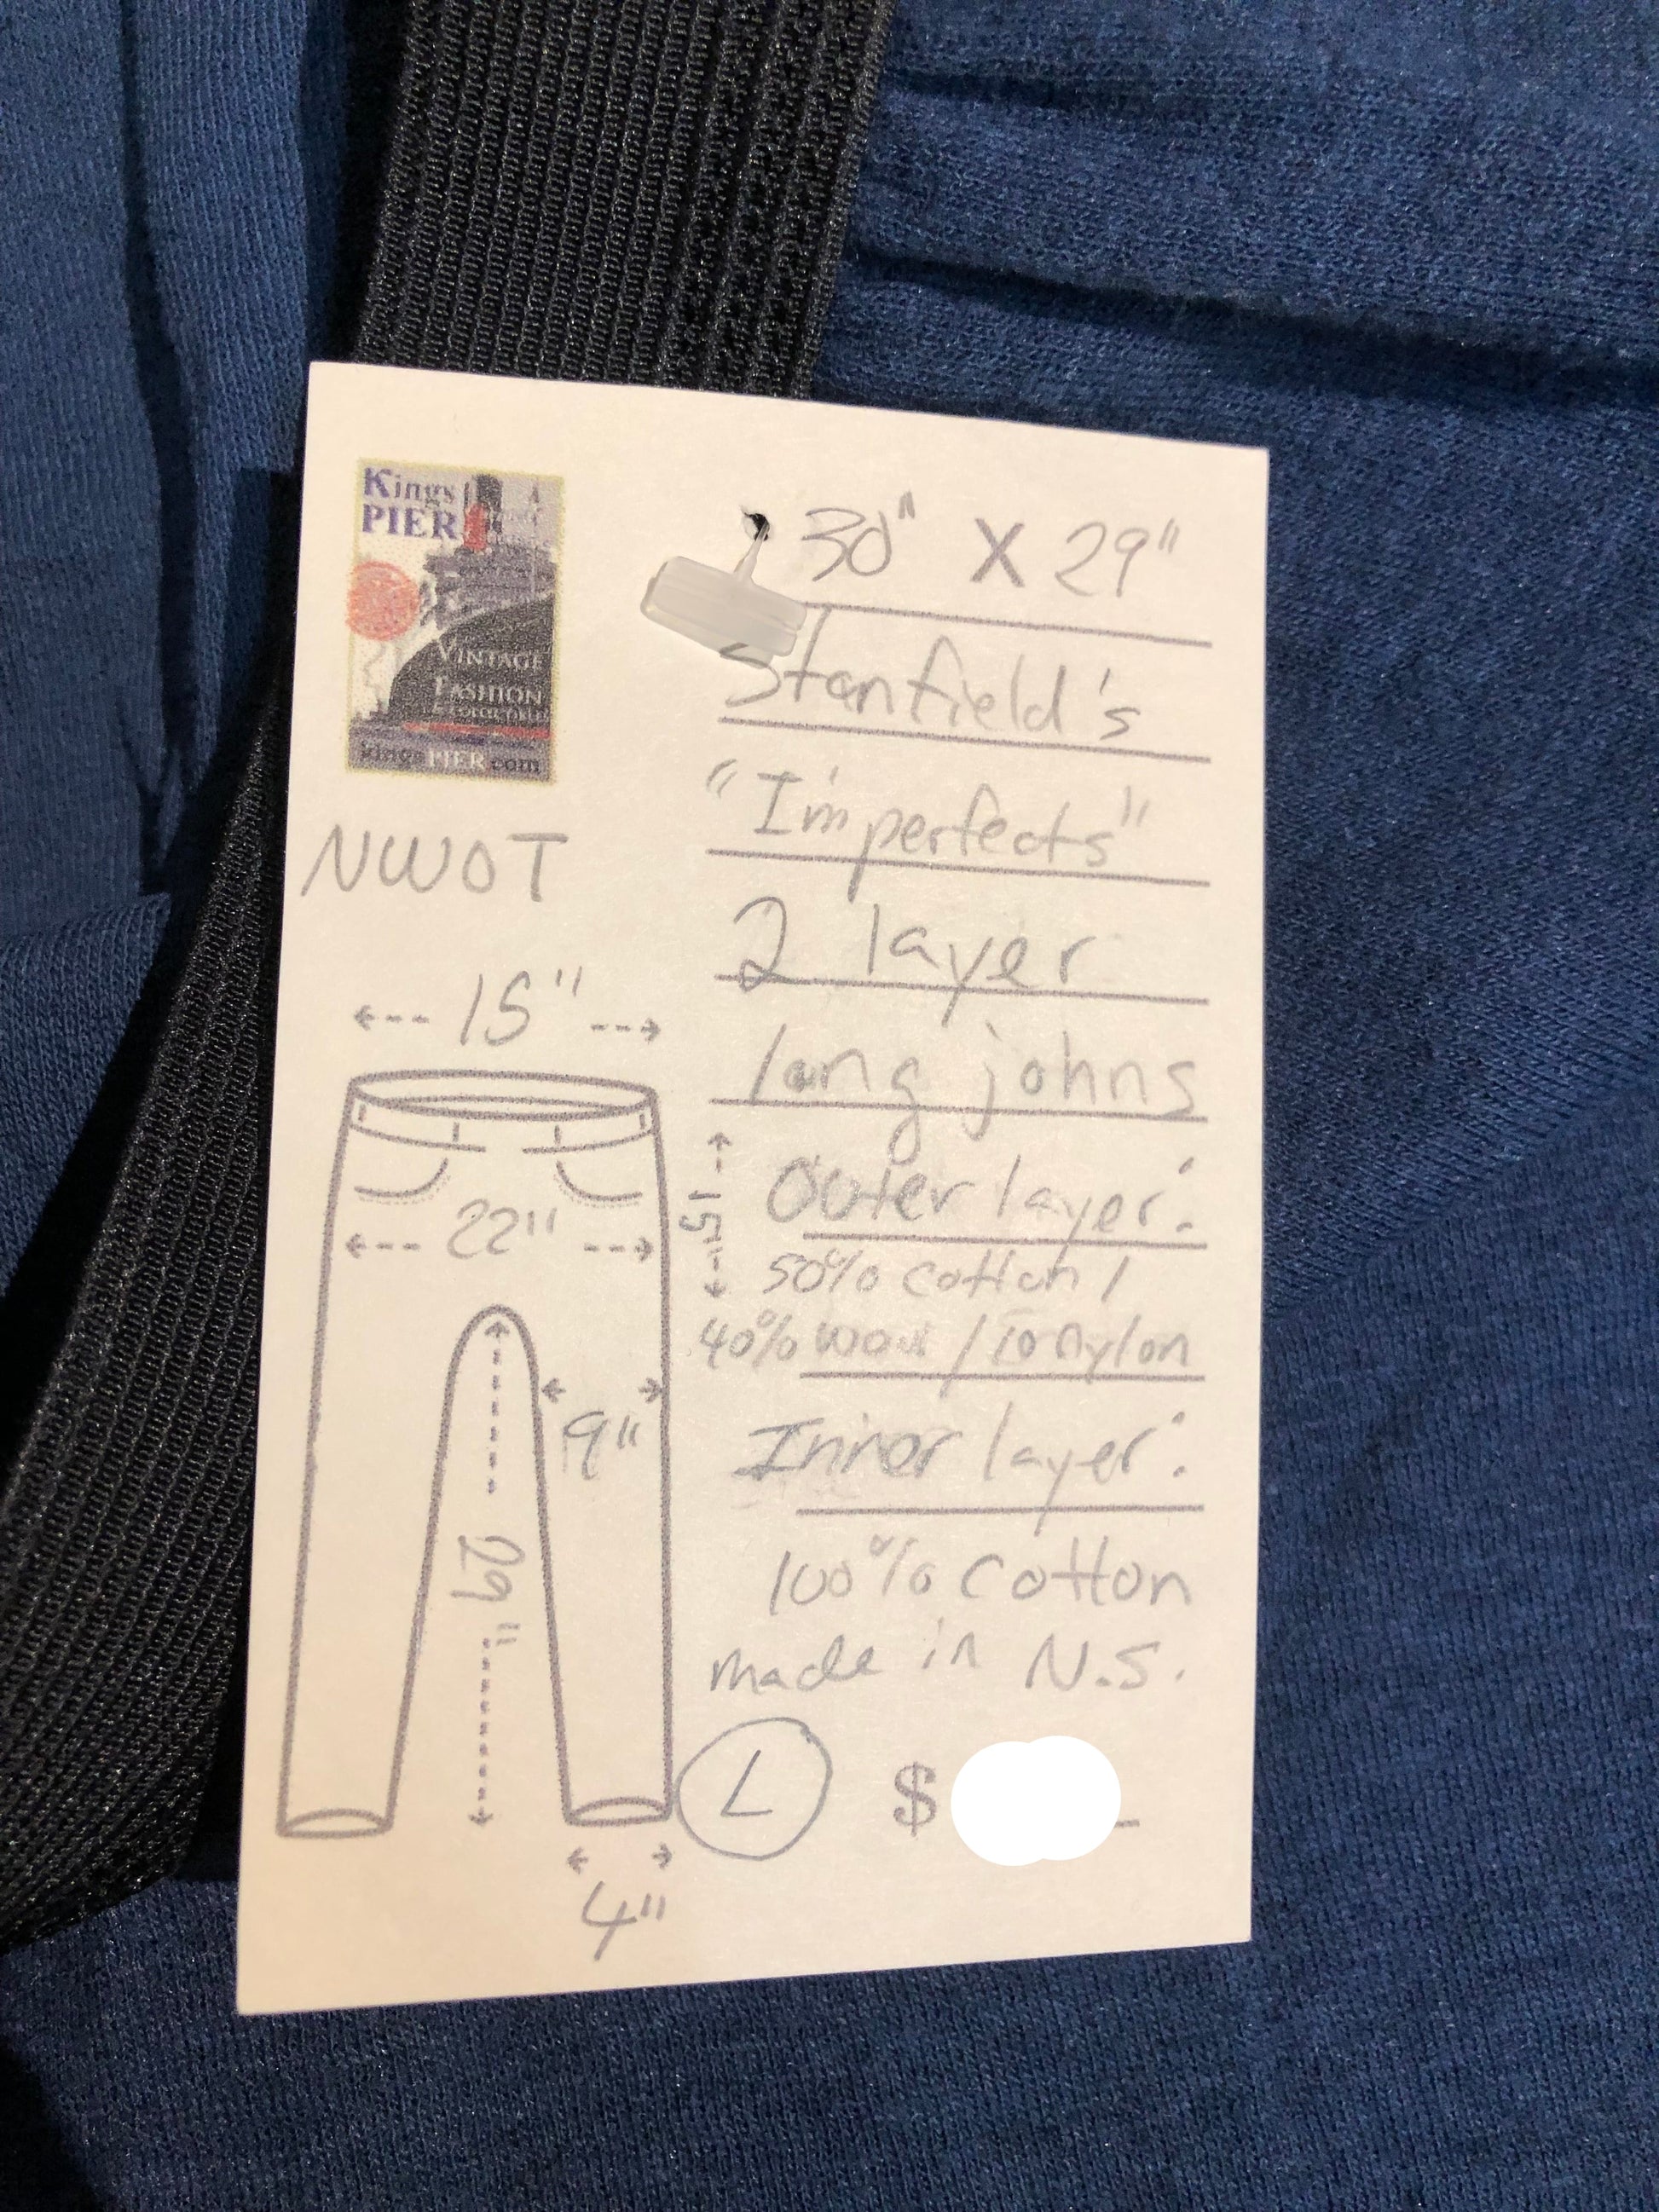 Kings
PIER
VINTAGE
FASHION
kingsPIER.com
NWOT
30" X 29"
Stanfield's
"Imperfects"
2 layer
long johns
Outer layer:
50% cotton /
40% wool / 10 nylon
Inner layer:
100% cotton
made in N.S.
L $
15"
22"
15"
9"
29"
4"